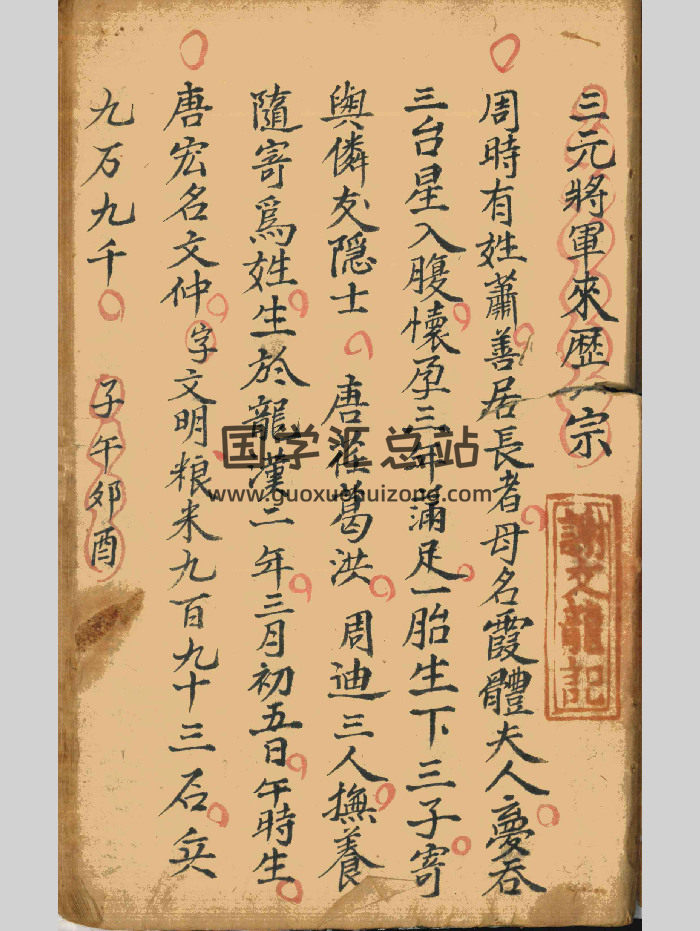 三元將軍來歷一宗
周時有姓蕭善居長者母名霞體夫人夢吞
三台星入腹懷孕三年滿足一胎生下三子寄
與憐友隠士 唐 葛洪 周迪三人撫養
隨寄爲姓生於龍漢二年三月初五日午時生
唐宏名文仲字文明粮米九百九十三石兵
九万九千 子午卯酉
謝文龍記
国学汇总站
www.guoxuehuizong.com